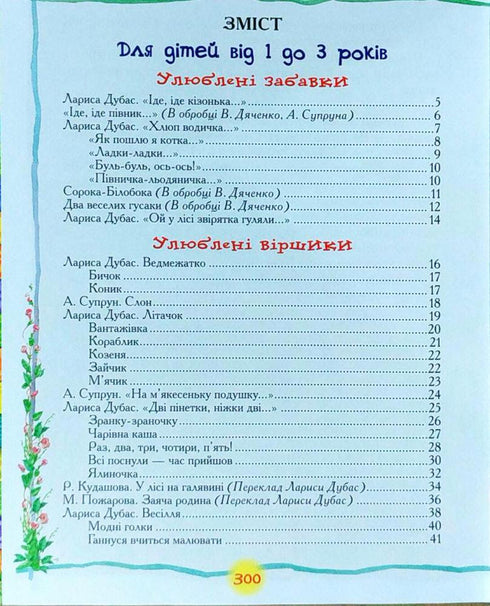 ЗМІСТ
Для дітей від 1 до 3 років
Улюблені забавки
Лариса Дубас. «Іде, іде кізонька...» 5
«Іде, іде півник...» (В обробці В. Дяченко, А. Супруна) 6
Лариса Дубас. «Хлюп водичка...» 7
«Як пошлю я котка...» 8
«Ладки-ладки...» 9
«Буль-буль, ось-ось!» 10
«Півничка-льодяничка...» 10
Сорока-Білобока (В обробці В. Дяченко) 11
Два веселих гусаки (В обробці В. Дяченко) 12
Лариса Дубас. «Ой у лісі звірятка гуляли...» 14
Улюблені віршики
Лариса Дубас. Ведмежатко 16
Бичок 17
Коник 17
А. Супрун. Слон 18
Лариса Дубас. Літачок 19
Вантажівка 20
Кораблик 21
Козеня 22
Зайчик 22
М'ячик 23
А. Супрун. «На м'якесеньку подушку...» 24
Лариса Дубас. «Дві пінетки, ніжки дві...» 25
Зранку-зраночку 26
Чарівна каша 27
Раз, два, три, чотири, п'ять! 28
Всі поснули — час прийшов 30
Ялиночка 32
Р. Кудашова. У лісі на галявині (Переклад Лариси Дубас) 34
М. Пожарова. Заяча родина (Переклад Лариси Дубас) 36
Лариса Дубас. Весілля 38
Модні голки 40
Ганнуся вчиться малювати 41
300